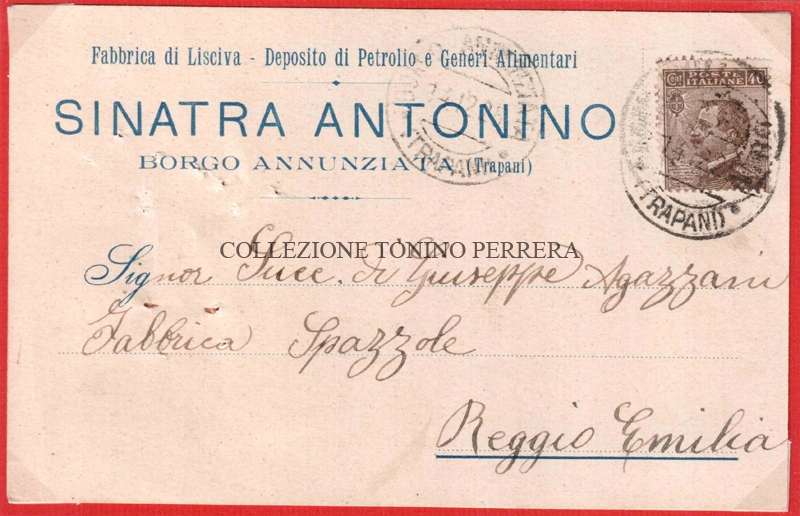 Fabbrica di Lisciva - Deposito di Petrolio e Generi Alimentari
SINATRA ANTONINO
BORGO ANNUNZIATA (Trapani)
POSTE ITALIANE
Cent 40
(TRAPANI)
(TRAPANI)
COLLEZIONE TONINO PERRERA
Signor Succ. di Giuseppe Agazzani
Fabbrica Spazzole
Reggio Emilia